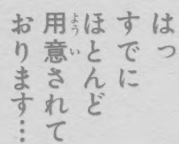 はっ
すでに
ほとんど
用意されて
おります…